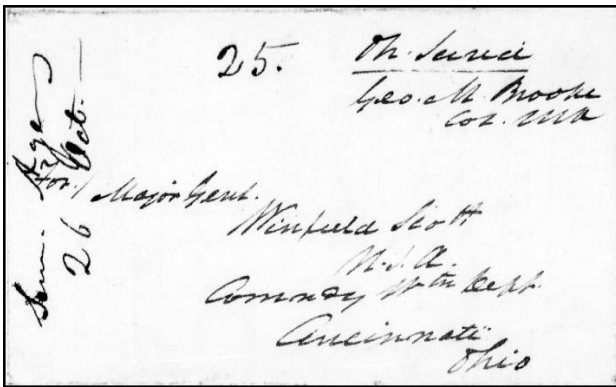 25.
On Service
Geo. M. Brooke
Col. USA
26 Oct.
For/ Major Genl.
Winfield Scott
U.S.A.
Commdg Wtn Dept.
Cincinnati
Ohio